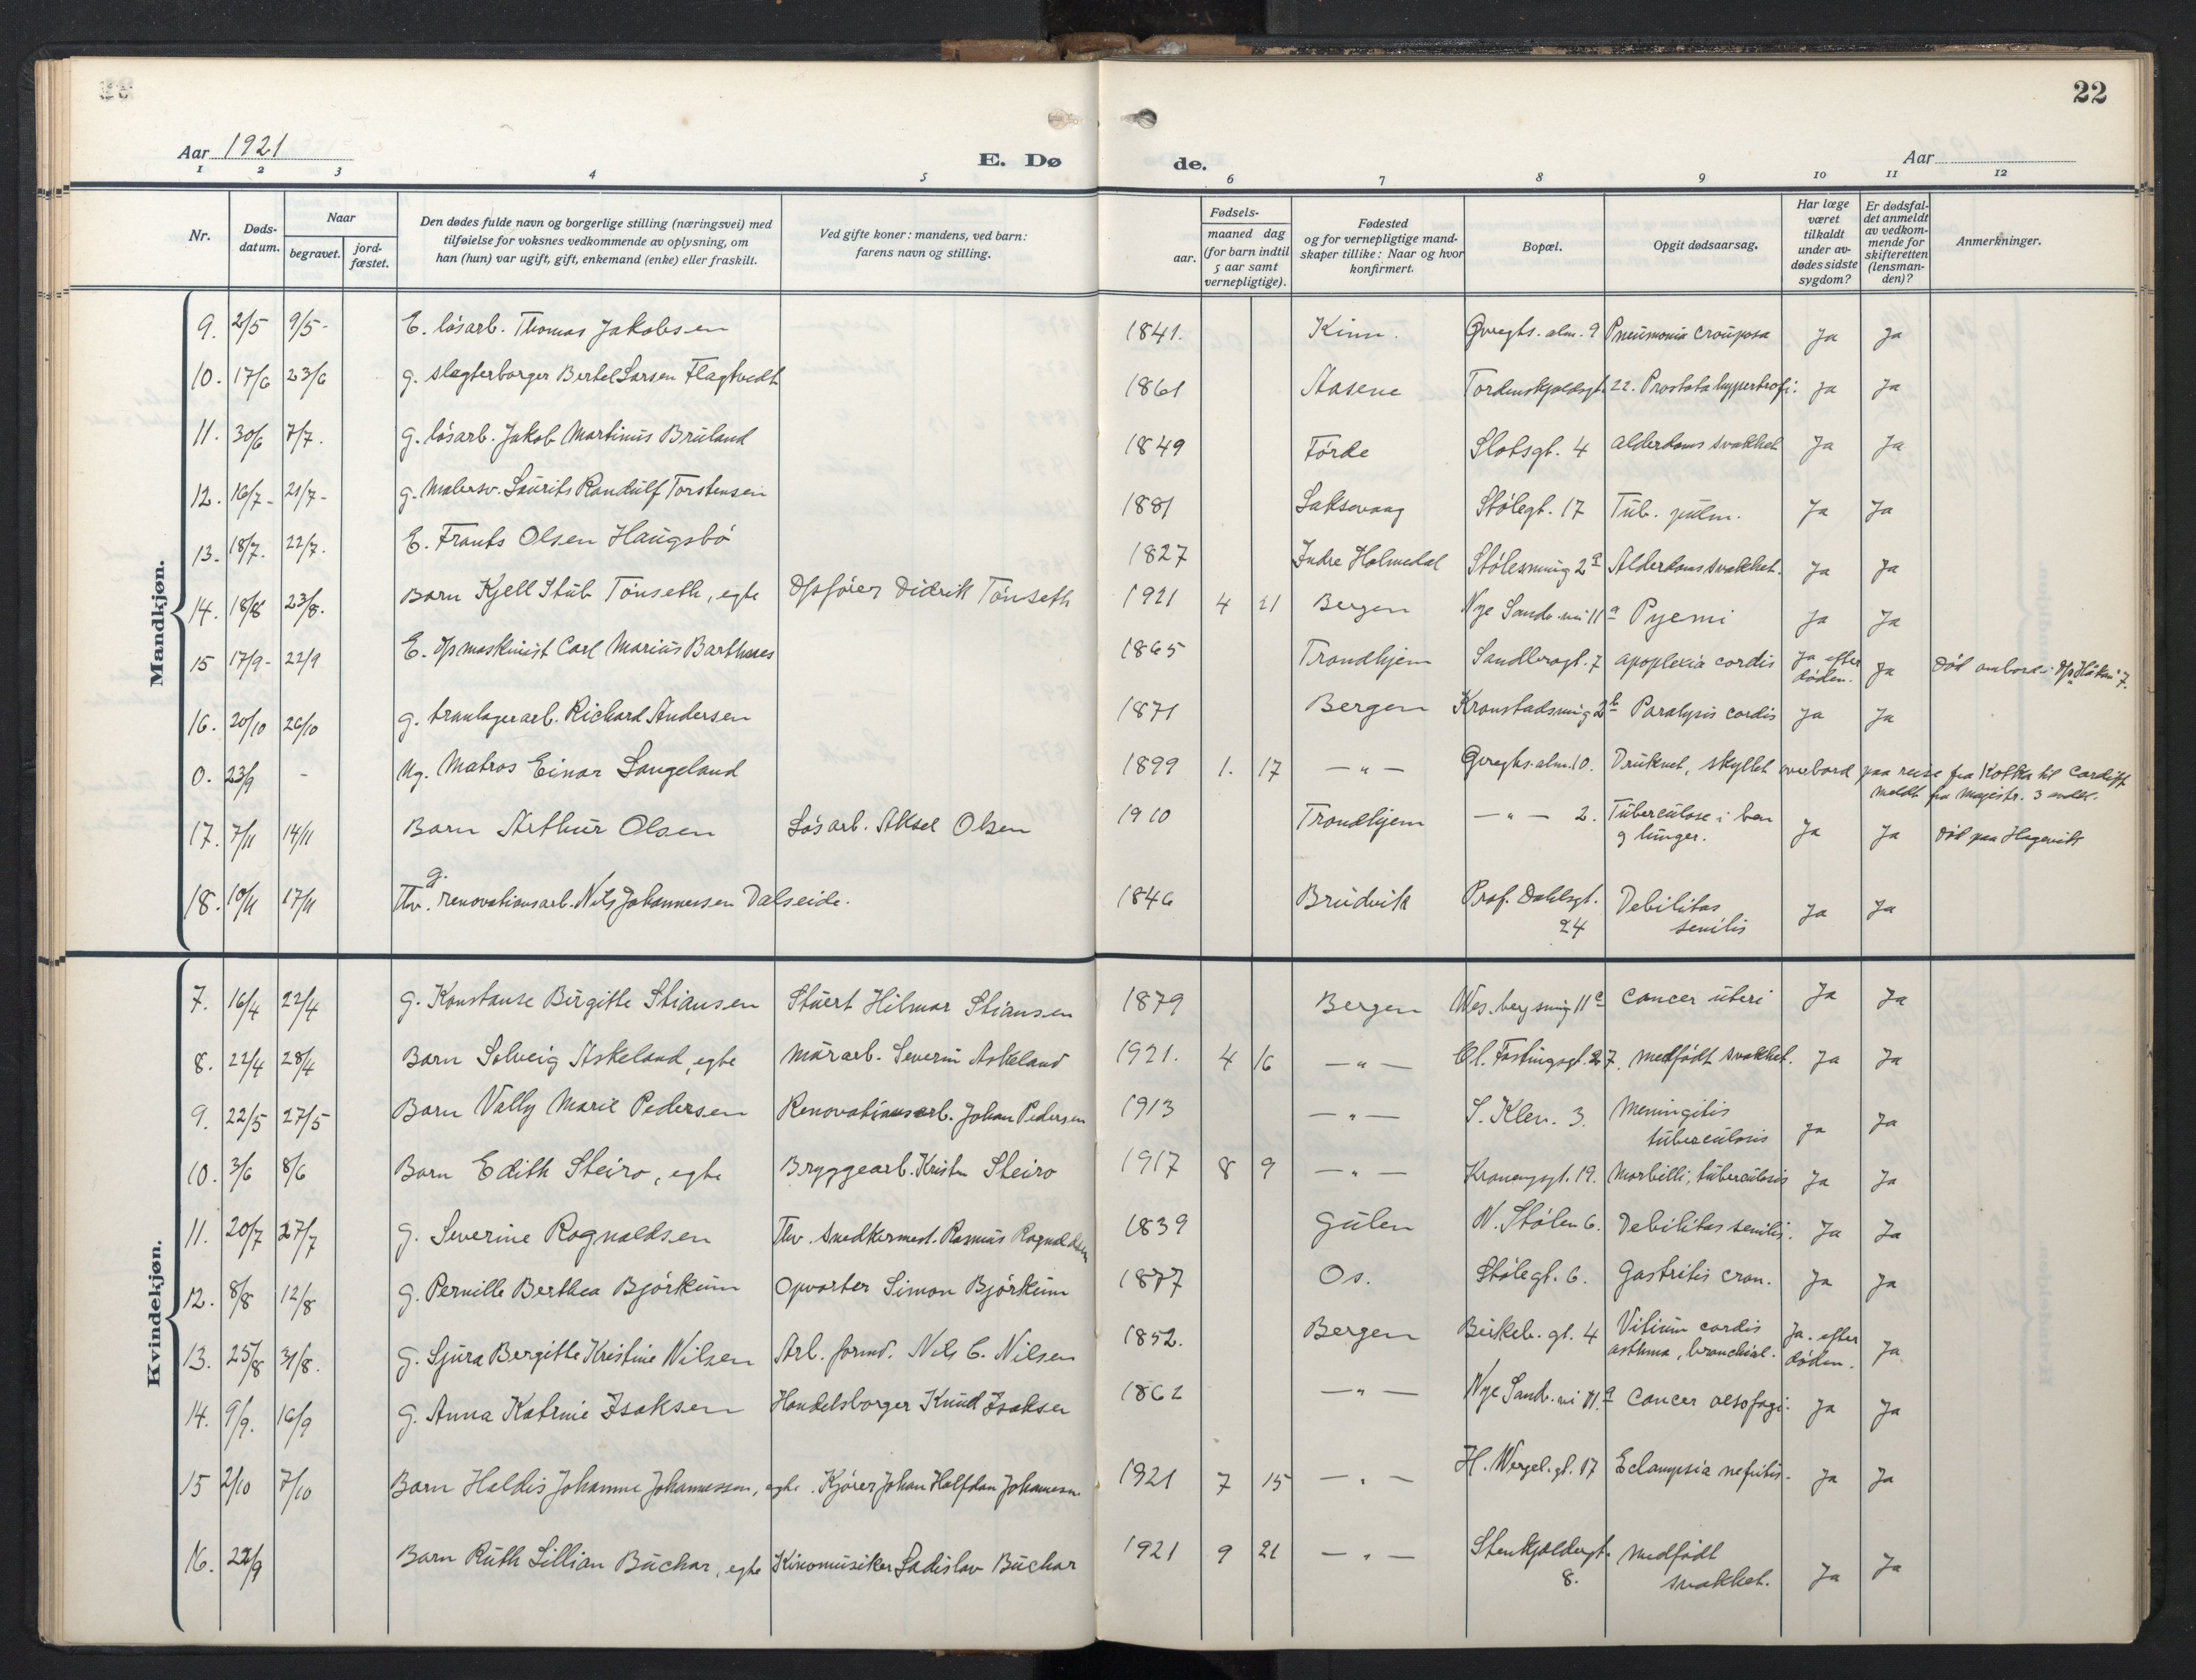 22
Aar 1921
E. Dø de.
Aar
1 2 3 4 5 6 7 8 9 10 11 12
Nr.
Døds-
datum.
Naar
begravet.
jord-
fæstet.
Den dødes fulde navn og borgerlige stilling (næringsvei) med
tilføielse for voksnes vedkommende av oplysning, om
han (hun) var ugift, gift, enkemand (enke) eller fraskilt.
Ved gifte koner: mandens, ved barn:
farens navn og stilling.
Fødsels-
aar.
maaned dag
(for barn indtil
5 aar samt
vernepligtige).
Fødested
og for vernepligtige mand-
skaper tillike: Naar og hvor
konfirmert.
Bopæl.
Opgit dødsaarsag.
Har læge
været
tilkaldt
under av-
dødes sidste
sygdom?
Er dødsfal-
det anmeldt
av vedkom-
mende for
skifteretten
(lensman-
den)?
Anmerkninger.
Mandkjøn.
9. 2/5 9/5- E. løsarb. Thomas Jakobsen 1841. Kinn. Øvregts. alm. 9 Pneumonia crouposa Ja Ja
10. 17/6 23/6 g. slagterborger Bertel Larsen Flagtvedt 1861 Aasene Tordenskjoldsgt. 22. Prostata hypertrofi. Ja Ja
11. 30/6 7/7. g. løsarb. Jakob Martinus Bruland 1849 Førde Slotsgt. 4 alderdoms svakhet Ja Ja
12. 16/7- 21/7- g. Malersv. Laurits Randulf Torstensen 1881 Laksevaag Stølegt. 17 Tub. pulm. Ja Ja
13. 18/7. 22/7. E. Frants Olsen Haugsbø 1827 Indre Holmedal 2a Alderdomssvakhet. Ja Ja
14. 18/8 23/8. Barn Kjell Stub Tønseth, egte Didrik Tønseth 1921 4 21 Bergen Nye Sandv. vei 11a Pyemi Ja Ja
15 17/9- 22/9 E. D/s maskinist Carl Marius 1865 Trondhjem Sandbrogt. 7 apoplexia cordis Ja efter
døden. Ja Død ombord i D/s "Håkon 7.
16. 20/10 26/10 g. tranlagerarb. Richard Andersen 1871 Bergen Kronstadsveig 2b Paralysis cordis Ja Ja
0. 23/9 - Ug. Matros Einar Langeland 1899 1. 17 —"— Øvregts. alm. 10. Druknet, skyllet overbord paa reise fra Kotka til Cardiff
meldt fra Magistr. 3 avdel.
17. 7/11 14/11 Barn Arthur Olsen Løsarb. Aksel Olsen 1910 Trondhjem —"— 2. Tuberculose i ben
og lunger. Ja Ja Død paa Hagevik
18. 10/11 17/11 g.
Thv. renovationsarb. Nils Johannessen Dalseide. 1846 Brudvik Prof. Dahlsgt.
24 Debilitas
senilis Ja Ja
Kvindekjøn.
7. 16/4 22/4 g. Konstanse Birgitte Stiansen Stuert Hilmar Stiansen 1879 Bergen 11c Cancer uteri Ja Ja
8. 22/4 28/4 Barn Solveig Askeland, egte Murarb. Severin Askeland 1921. 4 16 —"— Cl. Fastingsgt. 27. medfødt svakhet. Ja Ja
9. 22/5 27/5 Barn Vally Marie Pedersen Renovationsarb. Johan Pedersen 1913 —"— S. Klev. 3. Meningitis
tuberculosis Ja Ja
10. 3/6 8/6 Barn Edith Steiro, egte Bryggearb. Kristen Steiro 1917 8 9 —"— Kronengsgt. 19. Morbilli; tuberculosis Ja Ja
11. 20/7 27/7 g. Severine Rognaldsen Thv. snedkermest. Rasmus Rognaldsen 1839 Gulen N. Stølen 6. Debilitas senilis. Ja Ja
12. 8/8 12/8 g. Pernille Berthea Bjørkum Opvarter Simon Bjørkum 1877 Os. Stølegt. 6. Gastritis cron. Ja Ja
13. 25/8 31/8. g. Sjura Bergitte Kristine Nilsen Arb. formd. Nils C. Nilsen 1852. Bergen Birkeb. gt. 4 Vitium cordis
asthma, bronchial. Ja. efter
døden. Ja
14. 9/9. 16/9 g. Anna Katrine Isaksen Handelsborger Knud Isaksen 1862 —"— Nye Sandv. vei 11.a Cancer oesofagi. Ja Ja
15 2/10 7/10 Barn Haldis Johanne Johannessen, egte. Kjører Johan Halfdan Johannesen 1921 7 15 —"— H. Wergel. gt. 17 Eclampsia nefritis. Ja Ja
16. 22/9 Barn Ruth Lillian Buchar, egte Kinomusiker Ladislav Buchar 1921 9 21 —"— Stenkjeldergt.
8. medfødt
svakhet. Ja Ja